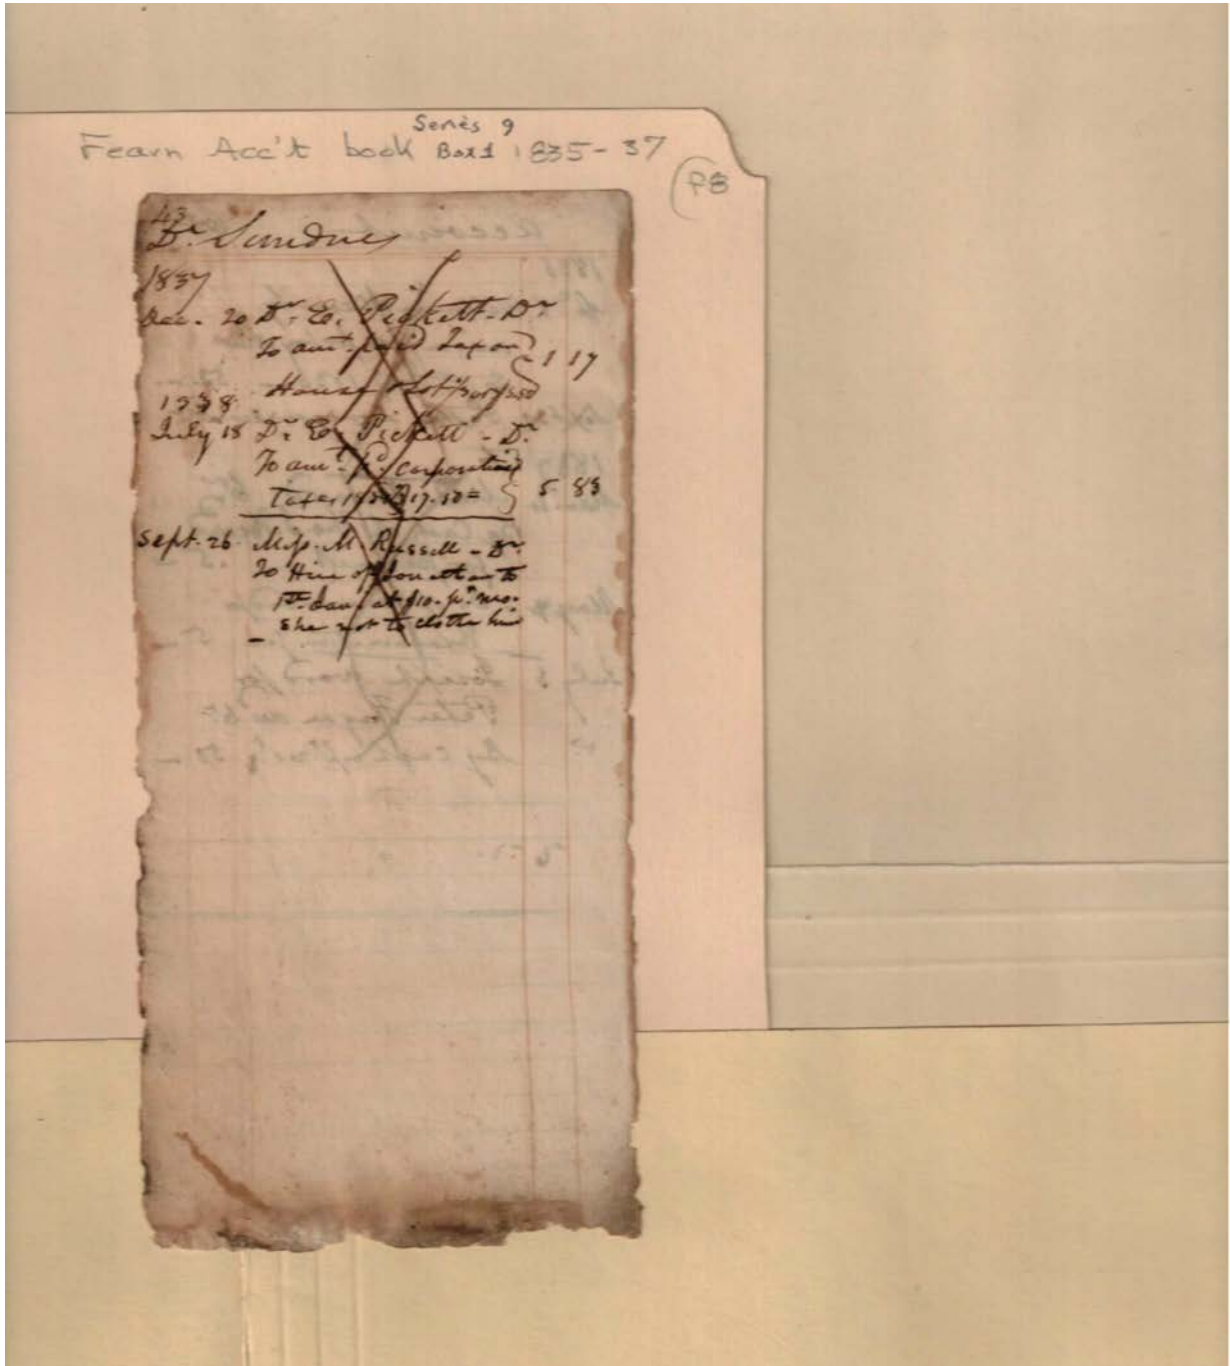 Series 9
Fearn Acc't book Box 1 1835-37
P8
43
Dr. Sundries
1837
Dec. 20 Dr. E. Pickett - Dr.
To amt. paid Tax on
House & Lot 1 17
1838
July 18 Dr. E. Pickett - Dr.
To amt. pd. corporation
Taxes 17.50 = 5 83
Sept. 26 Miss. M. Russell - Dr.
To Hire of Jonathan to
1st. Jany at $10. pr. mo.
She not to clothe him